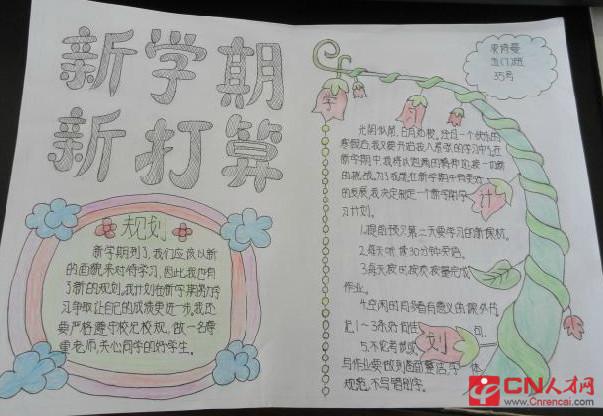 新学期
新打算
规划
新学期到了,我们应该以新
的面貌来对待学习,因此,我也有
了新的规划。我计划在新学期努力学
习争取让自己的成绩更进一步。我还
要严格遵守校纪校规,做一名尊
重老师,关心同学的好学生。
五(7)班
35号
学
习
计
划
光阴似箭,日月如梭。经过一个快乐的
寒假后,我又要开始投入紧张的学习中。在
新学期中,我将以饱满的精神迎接一切新
的挑战。为了我能在新学期中有更好
的发展,我决定制定一个新学期学
习计划。
1.提前预习第二天要学习的新课材。
2.每天听读30分钟英语。
3.每天按时按质按量完成
作业。
4.空闲的时间看有意义的课外书
5.不论考试或
写作业要做到卷面整洁,字体
规范,不写错别字。
CN人才网
Cnrencai.com